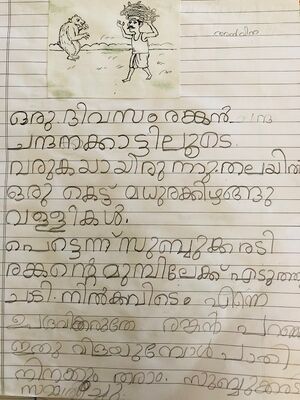 ഒരു.ദിവസം രങ്കൻ.
ചന്ദനക്കാട്ടിലൂടെ.
വരുകയായിരുന്നു.തലയിൽ
ഒരു കെട്ട് മധുരക്കിഴങ്ങു
വള്ളികൾ.
പെട്ടെന്ന് സുബ്ബുക്കരടി
രങ്കന്റെ മുമ്പിലേക്ക് എടുത്തു
ചാടി. നിൽക്കവിടെ. എന്നെ
ഉപദ്രവിക്കരുതേ രങ്കൻ പറഞ്ഞു
ഇതു വിളയുമ്പോൾ പാതി
നിനക്കും തരാം. സുബ്ബുക്കരടി
സമ്മതിച്ചു.